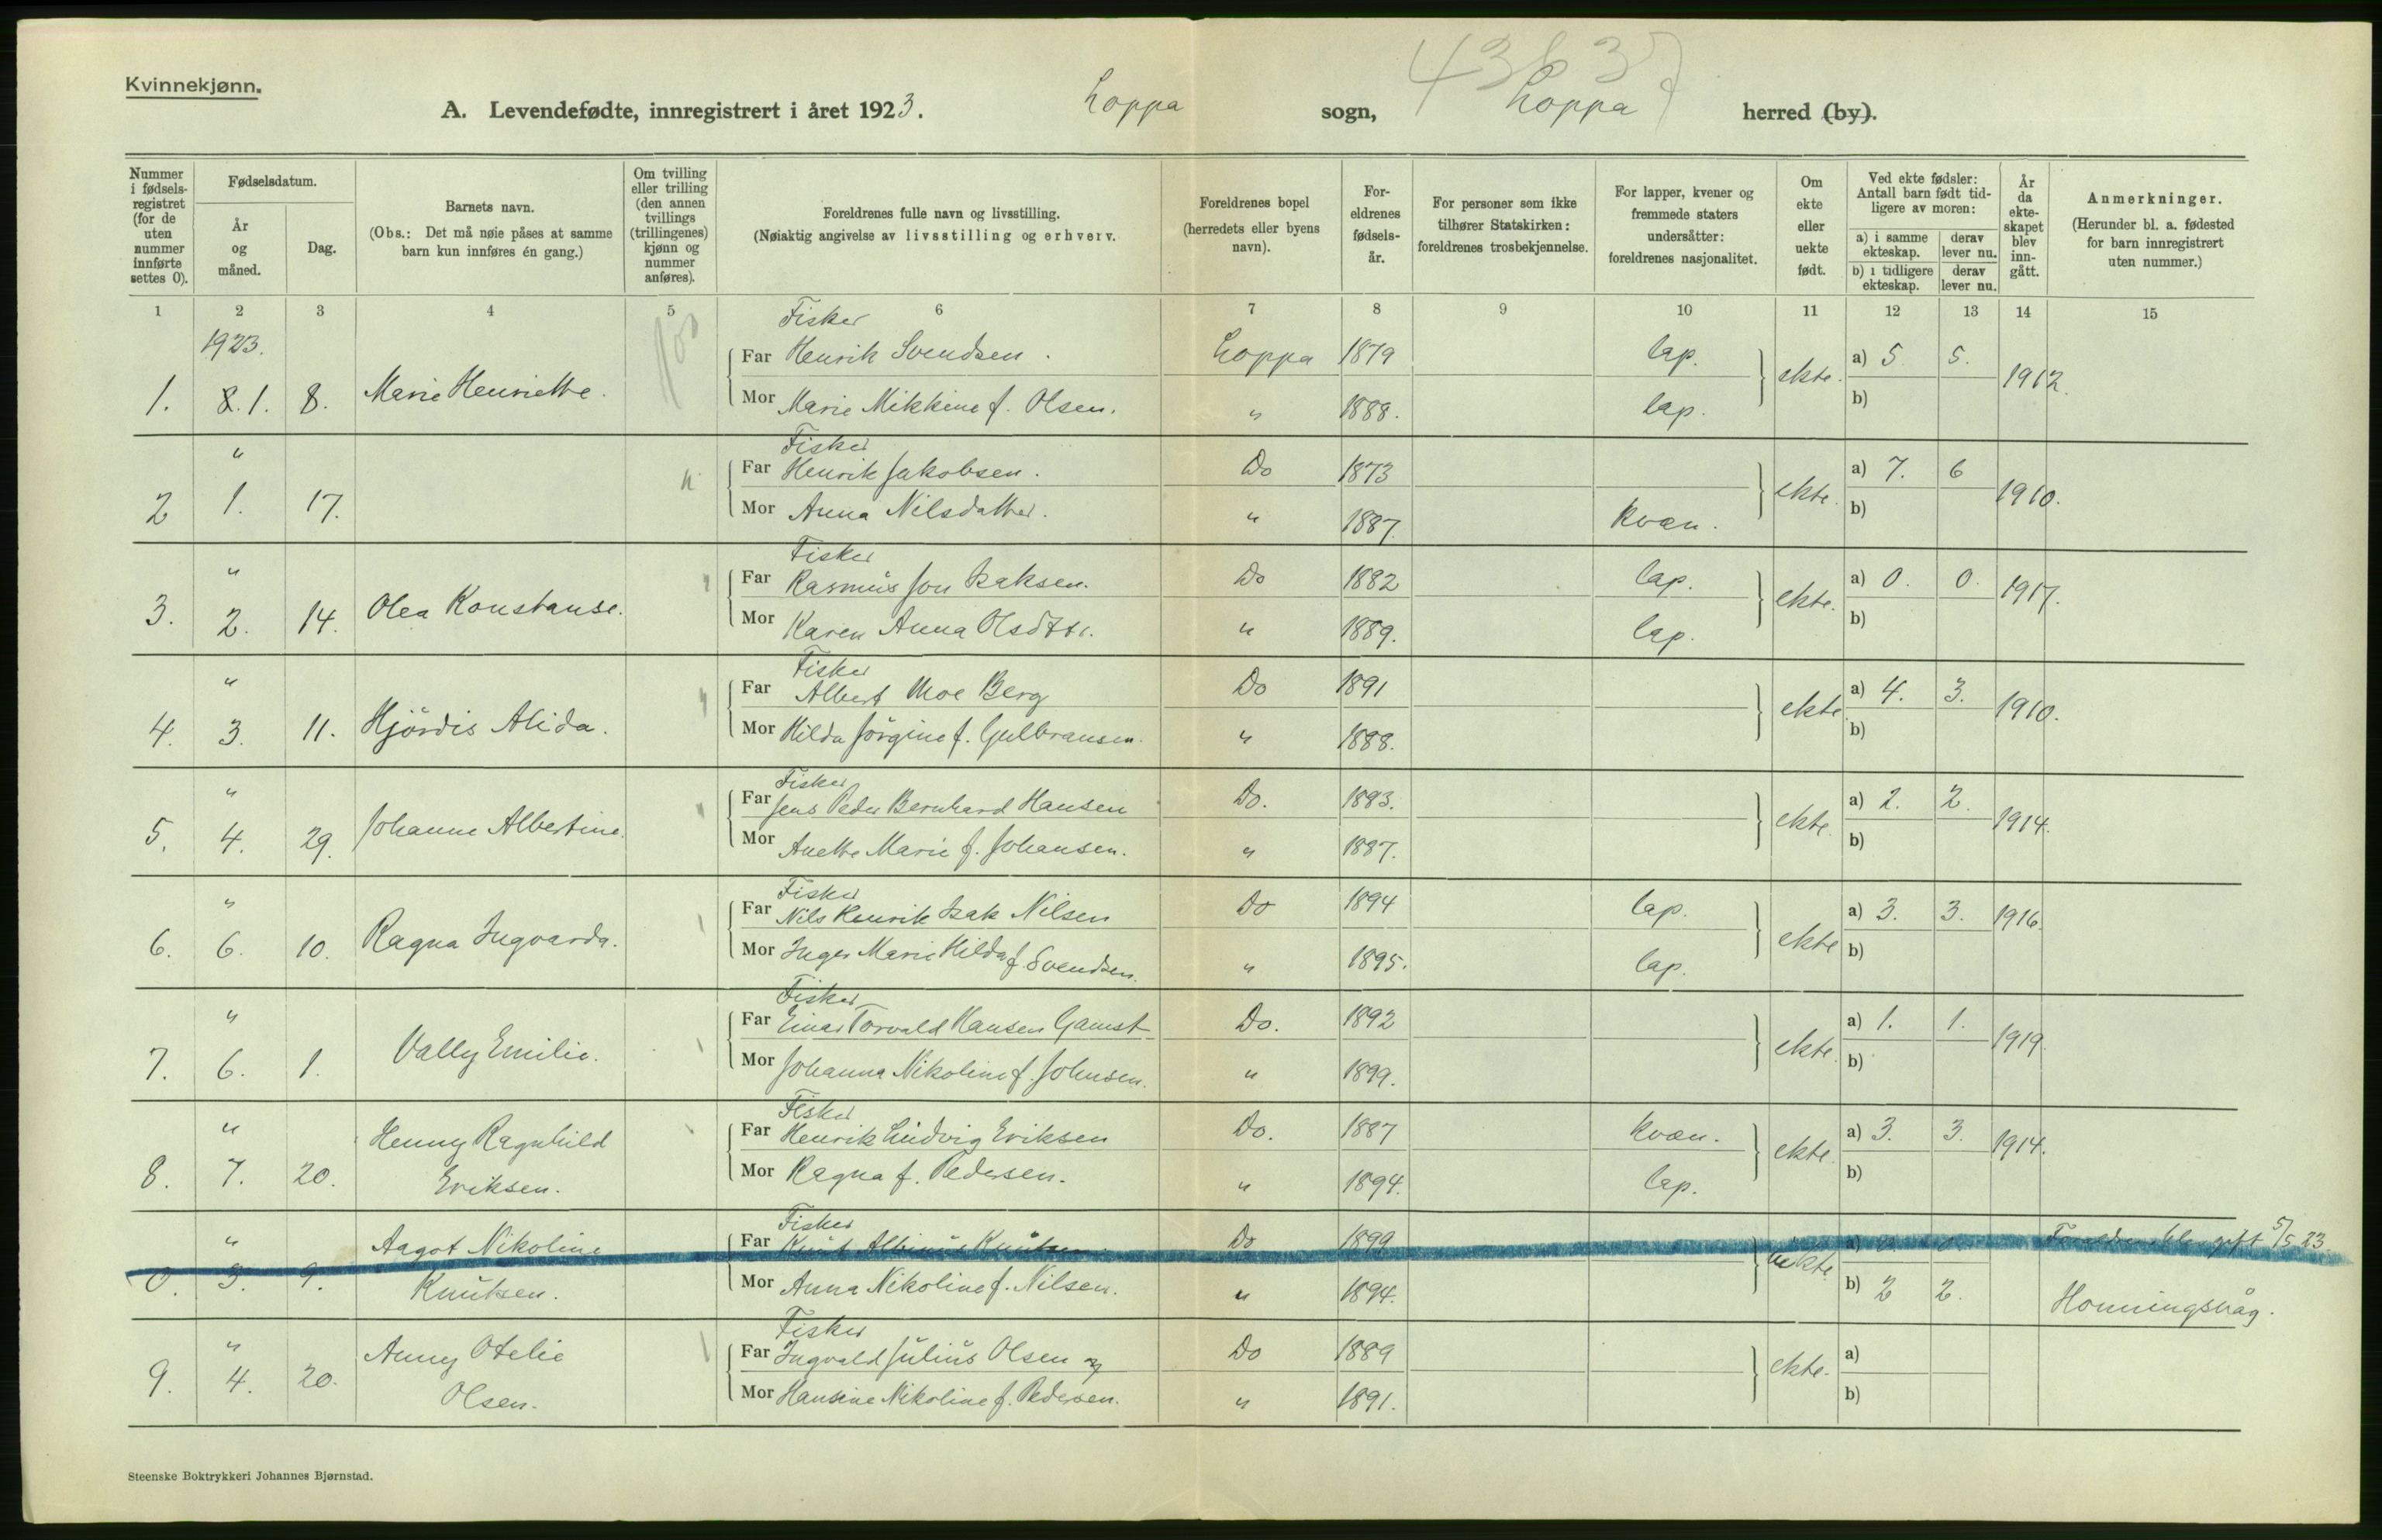 Kvinnekjønn.
A. Levendefødte, innregistrert i året 1923. Loppa sogn, Loppa herred (by).
Nummer i fødselsregistret (for de uten nummer innførte settes 0).
Fødselsdatum.
År og måned.
Dag.
Barnets navn.
(Obs.: Det må nøie påses at samme barn kun innføres én gang.)
Om tvilling eller trilling (den annen tvillings (trillingenes) kjønn og nummer anføres).
Foreldrenes fulle navn og livsstilling.
(Nøiaktig angivelse av livsstilling og erhverv.
Foreldrenes bopel (herredets eller byens navn).
Foreldrenes fødselsår.
For personer som ikke tilhører Statskirken: foreldrenes trosbekjennelse.
For lapper, kvener og fremmede staters undersåtter: foreldrenes nasjonalitet.
Om ekte eller uekte født.
Ved ekte fødsler: Antall barn født tidligere av moren:
a) i samme ekteskap. derav lever nu.
b) i tidligere ekteskap. derav lever nu.
År da ekteskapet blev inngått.
Anmerkninger.
(Herunder bl. a. fødested for barn innregistrert uten nummer.)
1 2 3 4 5 6 7 8 9 10 11 12 13 14 15
1923.
Fisker
Far Henrik Svendsen. Loppa 1879 lap. a) 5 5.
1. 8.1. 8. Marie Henriette. ekte. 1912.
Mor Marie Mikkine f. Olsen. " 1888. lap. b)
" Fisker
Far Henrik Jakobsen. Do 1873 a) 7. 6
2 1. 17. ekte. 1910.
Mor Anna Nilsdatter. " 1887. kvæn. b)
" Fisker
Far Rasmus Jon Isaksen. Do 1882 lap. a) 0. 0.
3. 2. 14. Olea Konstanse. ekte. 1917.
Mor Karen Anna Olsdtr. " 1889. lap. b)
" Fisker
Far Albert Moe Berg Do 1891 a) 4. 3.
4. 3. 11. Hjördis Alida. ekte 1910.
Mor Hilda Jörgine f. Gulbransen. " 1888. b)
" Fisker
Far Jens Peder Bernhard Hansen Do. 1893. a) 2. 2.
5. 4. 29. Johanne Albertine. ekte. 1914.
Mor Anette Marie f. Johansen. " 1897. b)
" Fisker
Far Nils Henrik Isak Nilsen Do 1894 lap. a) 3. 3. 1916
6. 6. 10. Ragna Ingvarda. ekte
Mor Inger Marie Hilda f. Svendsen. " 1895. lap. b)
" Fisker
Far Einar Torvald Hansen Gamst Do. 1892 a) 1. 1.
7. 6. 1. Vally Emilie. ekte. 1919.
Mor Johanna Nikoline f. Johnsen. " 1899. b)
" Fisker
Henny Ragnhild Far Henrik Ludvig Eriksen Do. 1887 kvæn. a) 3. 3. 1914.
8. 7. 20. Eriksen. Mor Ragna f. Pedersen. " 1894. lap. ekte. b)
" Fisker
Aagot Nikoline Far Knut Albinus Knutsen Do 1899 a) 0 0 Foreldrene blev gift 5/5 23.
0. 3. 9. Knutsen. Mor Anna Nikoline f. Nilsen. " 1894. uekte b) 2 2. Honningsvåg.
" Fisker
Anny Otelie Far Ingvald Julius Olsen og Do 1889 a)
9. 4. 20. Olsen. Mor Hansine Nikoline f. Pedersen. " 1891. ekte. b)
Steenske Boktrykkeri Johannes Bjørnstad.